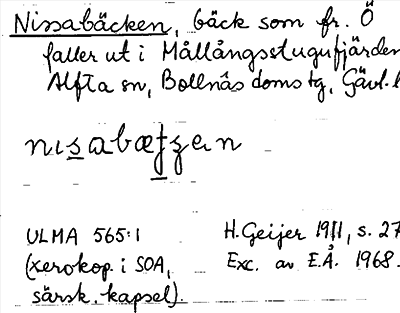 Nissabäcken, bäck som fr. Ö
faller ut i Mållångsstugufjärden
Alfta sn, Bollnäs domstg, Gävl. l
nisabætʃen
ULMA 565:1
(xerokop. i SOA,
särsk. kapsel).
H. Geijer 1911, s. 27
Exc. av E.Å. 1968.